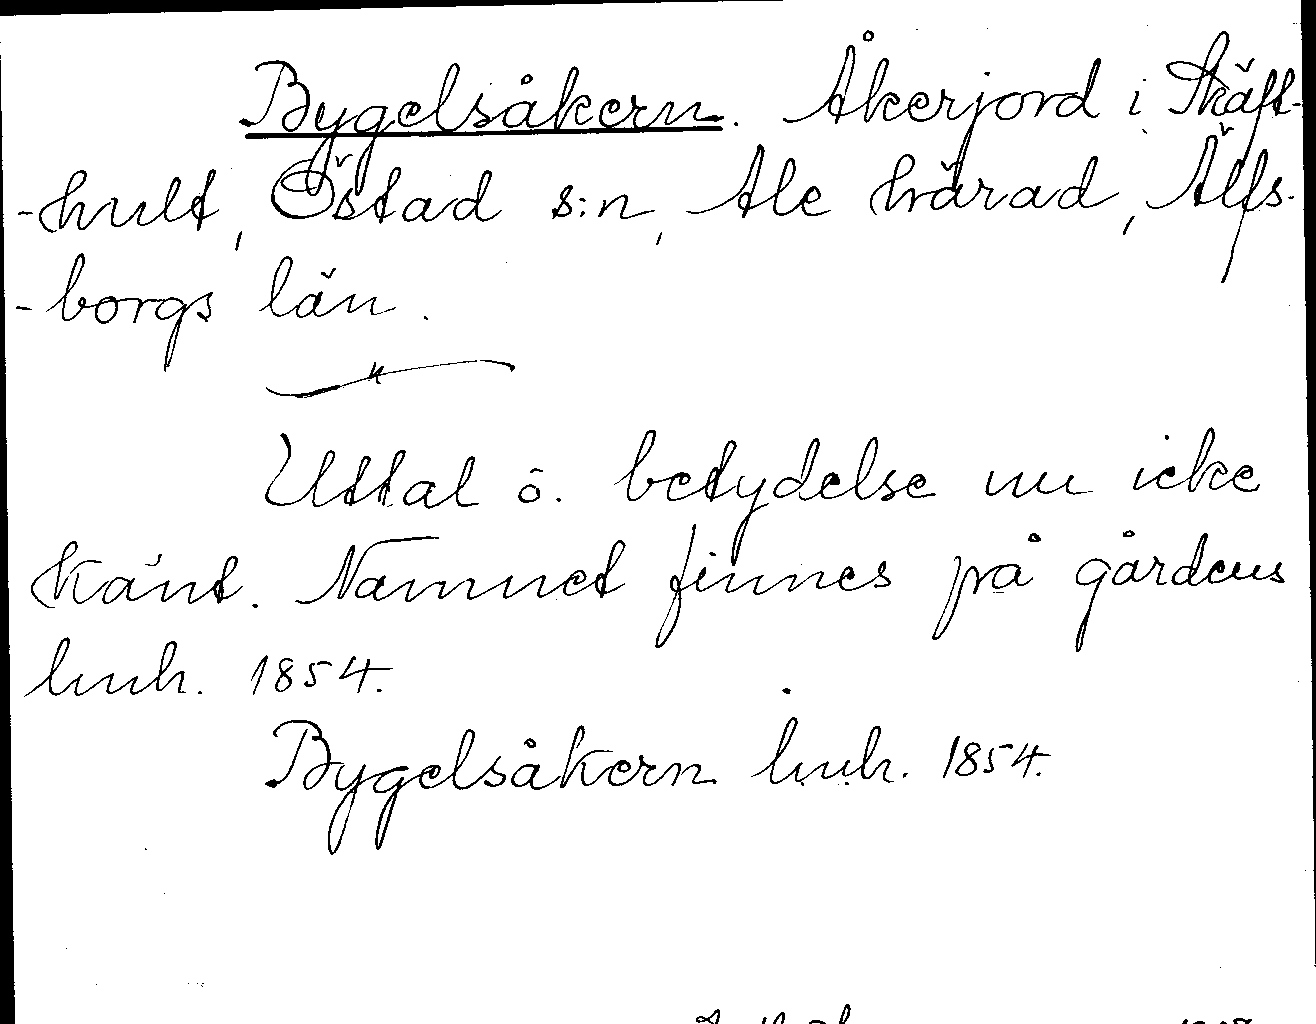 Bygelsåkern. Åkerjord i Skäft-
-hult, Östad s:n, Ale härad, Älfs-
-borgs län.
Uttal o. betydelse nu icke
känt. Namnet finnes på gårdens
lmh. 1854.
Bygelsåkern lmh. 1854.